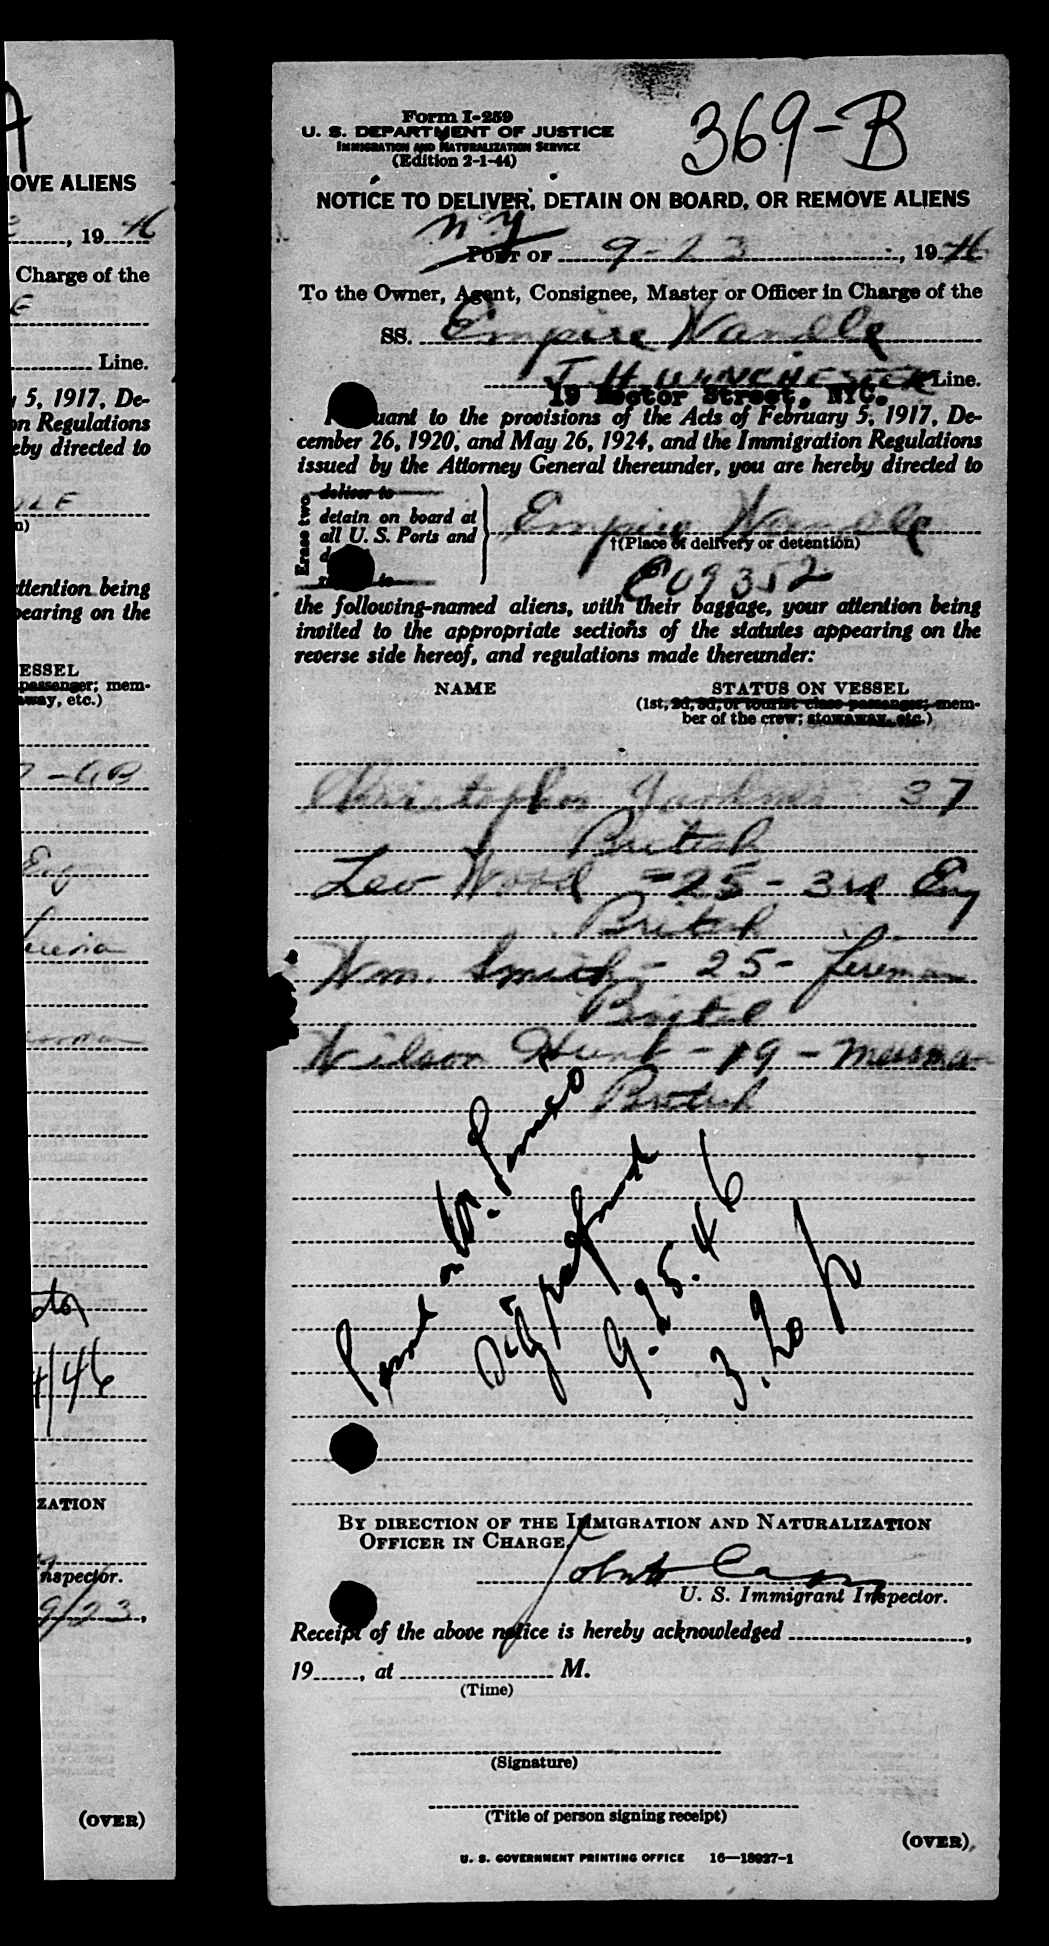 OVE ALIENS
, 19 46
Charge of the
Line.
5, 1917, De-
on Regulations
eby directed to
n)
ttention being
pearing on the
ESSEL
passenger; mem-
away, etc.)
Eng
4/46
ZATION
nspector.
9/23,
(OVER)
369-B
Form I-259
U. S. DEPARTMENT OF JUSTICE
IMMIGRATION AND NATURALIZATION SERVICE
(Edition 2-1-44)
NOTICE TO DELIVER, DETAIN ON BOARD, OR REMOVE ALIENS
N Y
PORT OF 9-23, 1946
To the Owner, Agent, Consignee, Master or Officer in Charge of the
SS. Empire Wandle
J H WINCHESTER Line.
19 Rector Street, NYC.
Pursuant to the provisions of the Acts of February 5, 1917, De-
cember 26, 1920, and May 26, 1924, and the Immigration Regulations
issued by the Attorney General thereunder, you are hereby directed to
Erase two
deliver to
detain on board at
all U. S. Ports and
Empire Wandle
†(Place of delivery or detention)
E09352
the following-named aliens, with their baggage, your attention being
invited to the appropriate sections of the statutes appearing on the
reverse side hereof, and regulations made thereunder:
NAME STATUS ON VESSEL
(1st, 2d, 3d, or tourist class passenger; mem-
ber of the crew; stowaway, etc.)
Christopher 37
British
Leo Wood - 25 - 3rd Eng
British
Wm. Smith - 25 - fireman
British
Wilson Hunt - 19 - Messman
British
9.25.46
3.20 p
BY DIRECTION OF THE IMMIGRATION AND NATURALIZATION
OFFICER IN CHARGE.
U. S. Immigrant Inspector.
Receipt of the above notice is hereby acknowledged ,
19 , at M.
(Time)
(Signature)
(Title of person signing receipt)
(OVER)
U. S. GOVERNMENT PRINTING OFFICE 16—18927-1